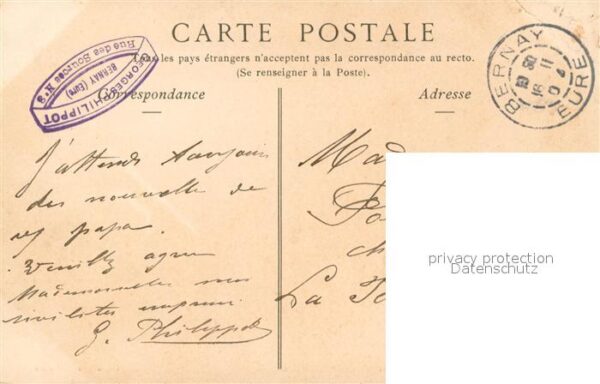 CARTE POSTALE
Tous les pays étrangers n'acceptent pas la correspondance au recto.
(Se renseigner à la Poste).
Correspondance
Adresse
GEORGES PHILIPPOT
BERNAY (Eure)
Rue des Sources N° 8
BERNAY
EURE
J'attends toujours
des nouvelle de
papa.
Veuillez agréer
Mademoiselle mes
civilités
G. Philippot
La
privacy protection
Datenschutz